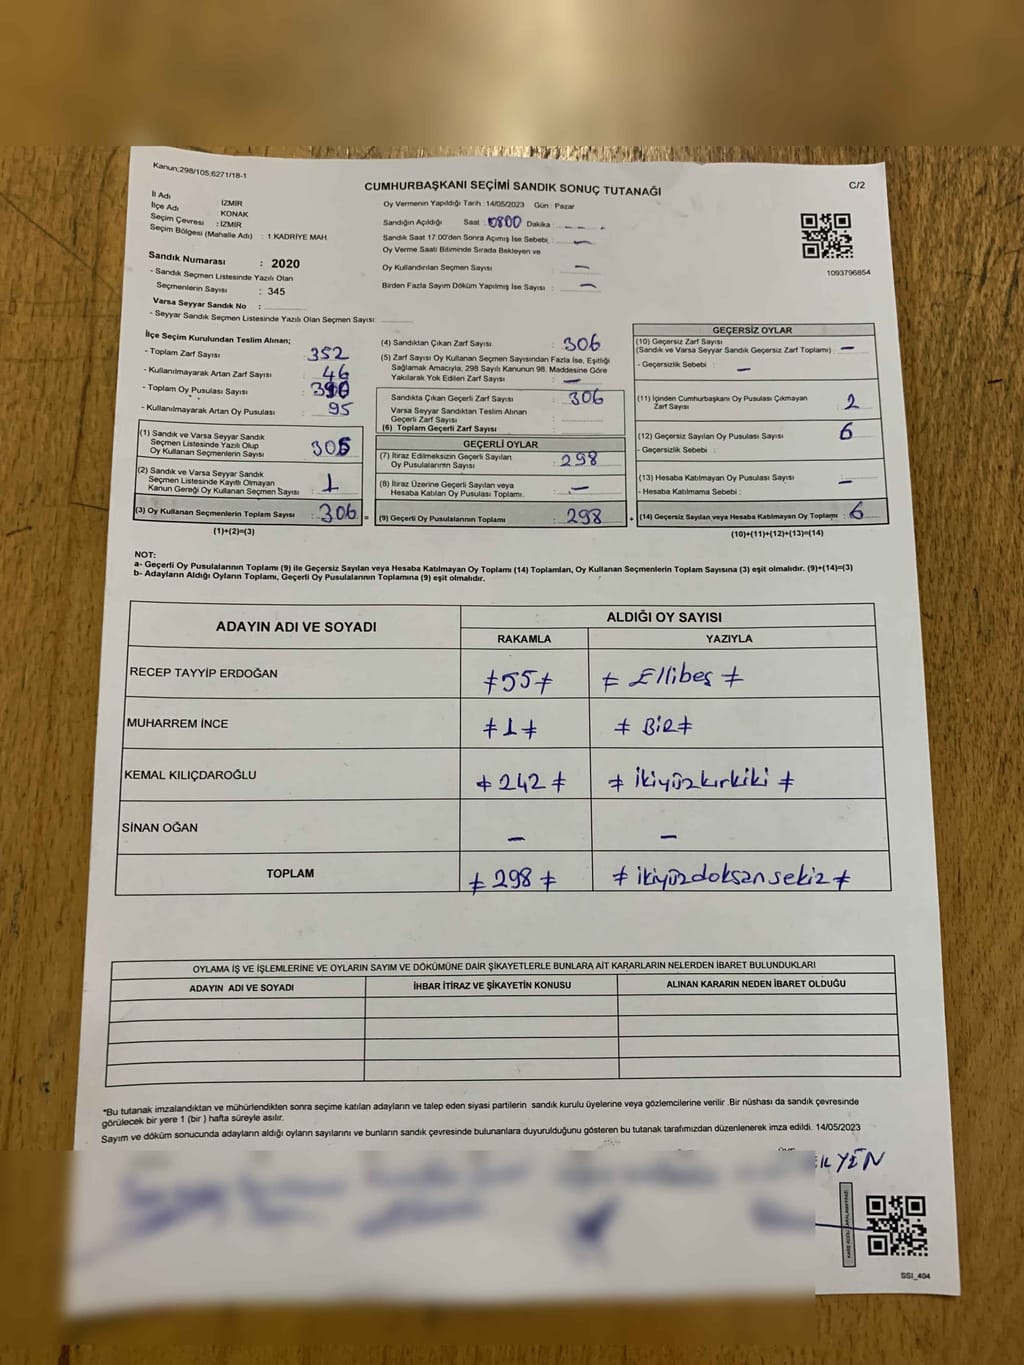 Kanun;298/105;6271/18-1
CUMHURBAŞKANI SEÇİMİ SANDIK SONUÇ TUTANAĞI
C/2
İl Adı : İZMİR
İlçe Adı : KONAK
Seçim Çevresi : İZMİR
Seçim Bölgesi (Mahalle Adı) : 1 KADRİYE MAH.
Sandık Numarası : 2020
- Sandık Seçmen Listesinde Yazılı Olan
Seçmenlerin Sayısı : 345
Varsa Seyyar Sandık No :
- Seyyar Sandık Seçmen Listesinde Yazılı Olan Seçmen Sayısı:
Oy Vermenin Yapıldığı Tarih :14/05/2023 Gün : Pazar
Sandığın Açıldığı Saat : 0800 Dakika : -
Sandık Saat 17:00'den Sonra Açımış İse Sebebi, : -
Oy Verme Saati Bitiminde Sırada Bekleyen ve
Oy Kullandırılan Seçmen Sayısı : -
Birden Fazla Sayım Döküm Yapılmış İse Sayısı : -
1093796854
İlçe Seçim Kurulundan Teslim Alınan;
- Toplam Zarf Sayısı : 352
- Kullanılmayarak Artan Zarf Sayısı : 46
- Toplam Oy Pusulası Sayısı :
- Kullanılmayarak Artan Oy Pusulası : 95
(1) Sandık ve Varsa Seyyar Sandık
Seçmen Listesinde Yazılı Olup
Oy Kullanan Seçmenlerin Sayısı : 305
(2) Sandık ve Varsa Seyyar Sandık
Seçmen Listesinde Kayıtlı Olmayan
Kanun Gereği Oy Kullanan Seçmen Sayısı : 1
(3) Oy Kullanan Seçmenlerin Toplam Sayısı : 306 =
(1)+(2)=(3)
(4) Sandıktan Çıkan Zarf Sayısı : 306
(5) Zarf Sayısı Oy Kullanan Seçmen Sayısından Fazla İse, Eşitliği
Sağlamak Amacıyla; 298 Sayılı Kanunun 98. Maddesine Göre
Yakılarak Yok Edilen Zarf Sayısı : -
Sandıkta Çıkan Geçerli Zarf Sayısı : 306
Varsa Seyyar Sandıktan Teslim Alınan
Geçerli Zarf Sayısı :
(6) Toplam Geçerli Zarf Sayısı :
GEÇERLİ OYLAR
(7) İtiraz Edilmeksizin Geçerli Sayılan
Oy Pusulalarının Sayısı : 298
(8) İtiraz Üzerine Geçerli Sayılan veya
Hesaba Katılan Oy Pusulası Toplamı. : -
(9) Geçerli Oy Pusulalarının Toplamı : 298 +
GEÇERSİZ OYLAR
(10) Geçersiz Zarf Sayısı
(Sandık ve Varsa Seyyar Sandık Geçersiz Zarf Toplamı) : -
- Geçersizlik Sebebi : -
(11) İçinden Cumhurbaşkanı Oy Pusulası Çıkmayan
Zarf Sayısı : 2
(12) Geçersiz Sayılan Oy Pusulası Sayısı : 6
- Geçersizlik Sebebi :
(13) Hesaba Katılmayan Oy Pusulası Sayısı : -
- Hesaba Katılmama Sebebi :
(14) Geçersiz Sayılan veya Hesaba Katılmayan Oy Toplamı : 6
(10)+(11)+(12)+(13)=(14)
NOT:
a- Geçerli Oy Pusulalarının Toplamı (9) ile Geçersiz Sayılan veya Hesaba Katılmayan Oy Toplamı (14) Toplamları, Oy Kullanan Seçmenlerin Toplam Sayısına (3) eşit olmalıdır. (9)+(14)=(3)
b- Adayların Aldığı Oyların Toplamı, Geçerli Oy Pusulalarının Toplamına (9) eşit olmalıdır.
ADAYIN ADI VE SOYADI ALDIĞI OY SAYISI
RAKAMLA YAZIYLA
RECEP TAYYİP ERDOĞAN ≠55≠ ≠ Ellibeş ≠
MUHARREM İNCE ≠1≠ ≠ Bir≠
KEMAL KILIÇDAROĞLU ≠242≠ ≠ ikiyüzkırkiki ≠
SİNAN OĞAN - -
TOPLAM ≠298≠ ≠ ikiyüzdoksansekiz ≠
OYLAMA İŞ VE İŞLEMLERİNE VE OYLARIN SAYIM VE DÖKÜMÜNE DAİR ŞİKAYETLERLE BUNLARA AİT KARARLARIN NELERDEN İBARET BULUNDUKLARI
ADAYIN ADI VE SOYADI İHBAR İTİRAZ VE ŞİKAYETİN KONUSU ALINAN KARARIN NEDEN İBARET OLDUĞU
*Bu tutanak imzalandıktan ve mühürlendikten sonra seçime katılan adayların ve talep eden siyasi partilerin sandık kurulu üyelerine veya gözlemcilerine verilir .Bir nüshası da sandık çevresinde
görülecek bir yere 1 (bir ) hafta süreyle asılır.
Sayım ve döküm sonucunda adayların aldığı oyların sayılarını ve bunların sandık çevresinde bulunanlara duyurulduğunu gösteren bu tutanak tarafımızdan düzenlenerek imza edildi. 14/05/2023
SSI_404